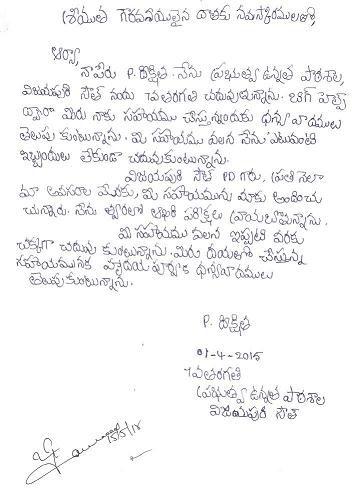 శ్రీయుత గౌరవనీయులైన దాతకు నమస్కారములతో,
ఆర్యా,
నాపేరు P. దీక్షిత నేను ప్రభుత్వ ఉన్నత పాఠశాల,
విజయపురి సౌత్ నందు 7వతరగతి చదువుతున్నాను. బిగ్ హెల్ప్
ద్వారా మీరు నాకు సహాయము చేస్తున్నందుకు ధన్యవాదములు
తెలుపు కుంటున్నాను. మీ సహాయము వలన నేను ఎటువంటి
ఇబ్బందులు లేకుండా చదువుకుంటున్నాను.
విజయపురి సౌత్ PD గారు, ప్రతి నెలా
మా అవసరాల మేరకు, మీ సహాయమును మాకు అందించు
చున్నారు. నేను త్వరలో ఆఖరి పరీక్షలు వ్రాయబోవుచున్నాను.
మీ సహాయము వలన ఇప్పటి వరకు
చక్కగా చదువు కుంటున్నాను. మీరు దయతో చేస్తున్న
సహాయమునకు హృదయ పూర్వక ధన్యవాదములు
తెలుపుకుంటున్నాను.
P. దీక్షిత
01-4-2015
7వతరగతి
ప్రభుత్వ ఉన్నత పాఠశాల
విజయపురి సౌత్